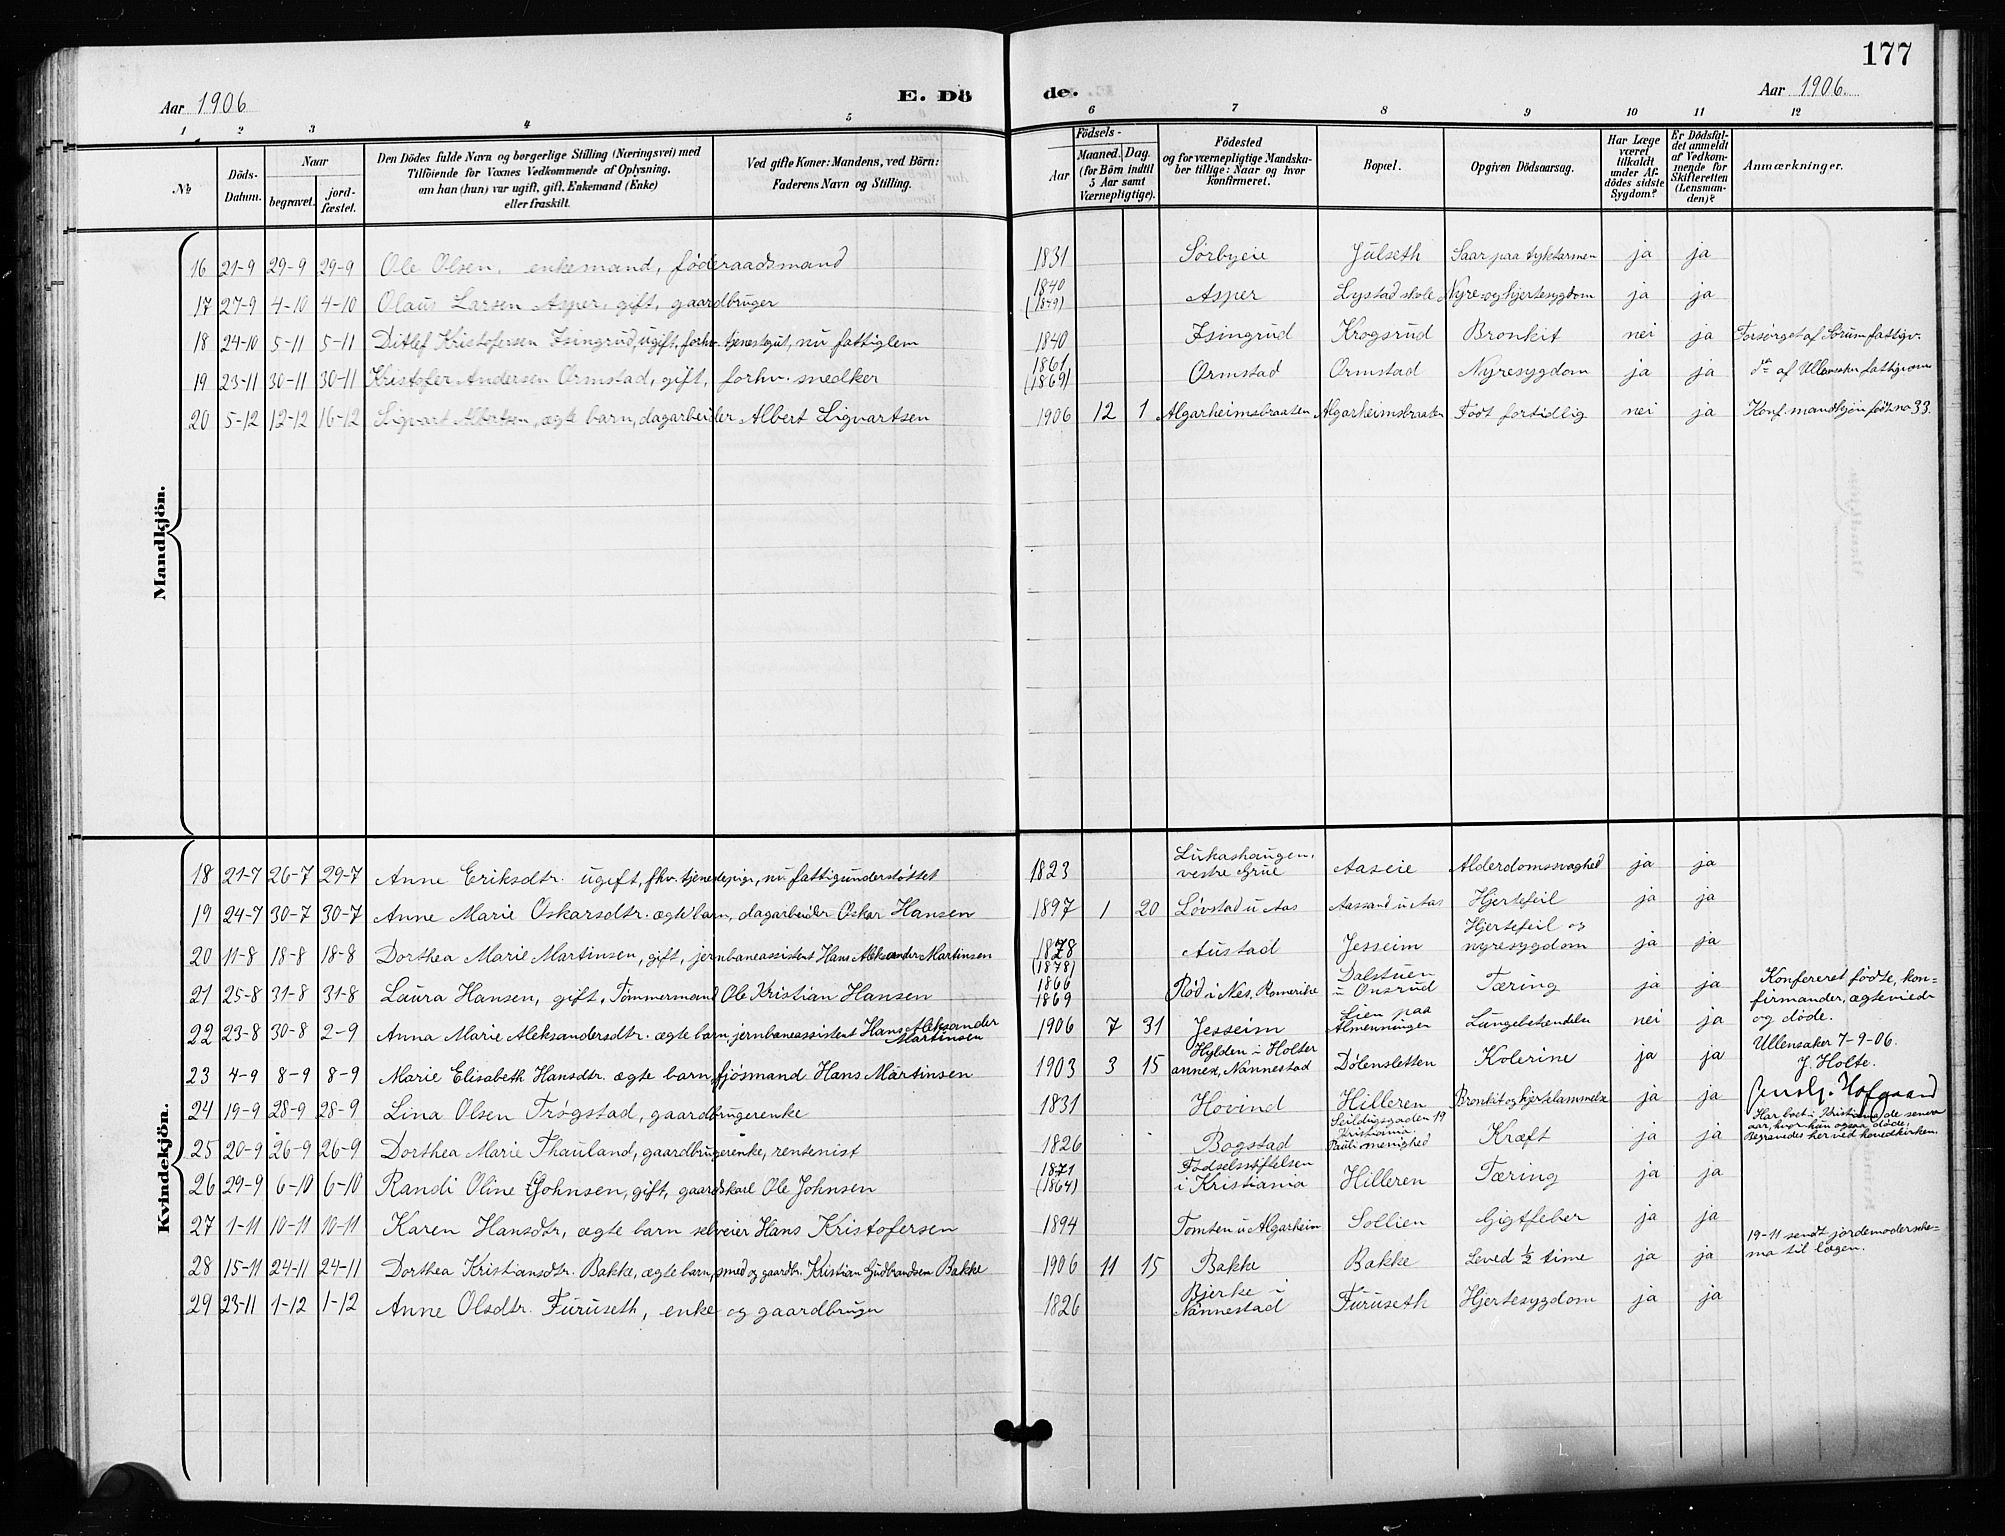 177
Aar 1906
E. Dö
de.
Aar 1906.
1 2 3 4 5 6 7 8 9 10 11 12
No
Döds-Datum.
Naar
begravet.
jord-fæstet.
Den Dödes fulde Navn og borgerlige Stilling (Næringsvei) med
Tilföiende for Voxnes Vedkommende af Oplysning,
om han (hun) var ugift, gift, Enkemand (Enke)
eller fraskilt.
Ved gifte Koner: Mandens, ved Börn:
Faderens Navn og Stilling.
Födsels-
Aar
Maaned. Dag.
(for Börn indtil
5 Aar samt
Værnepligtige).
Födested
og for værnepligtige Mandska-
ber tillige: Naar og hvor
konfirmeret.
Bopæl.
Opgiven Dödsaarsag.
Har Læge
været
tilkaldt
under Af-
dödes sidste
Sygdom?
Er Dödsfal-
det anmeldt
af Vedkom-
mende for
Skifteretten
(Lensman-
den)?
Anmærkninger.
Mandkjön.
16 21-9 29-9 29-9 Ole Olsen, enkemand, føderaadsmand 1831 Sørbyeie Julseth Saar paa tyktarmen ja ja
17 27-9 4-10 4-10 Olaus Larsen Asper, gift, gaardbruger 1840 (1849) Asper Lystad skole Nyre- og hjertesygdom ja ja
18 24-10 5-11 5-11 Ditlef Kristofersen Isingrud, ugift, forhv. tjenestegut, nu fattiglem 1840 Isingrud Krogsrud Bronkit nei ja Forsørget af Sørum fattigv.
19 23-11 30-11 30-11 Kristofer Andersen Ormstad, gift, forhv. snedker 1861 (1869) Ormstad Ormstad Nyresygdom ja ja do af Ullensaker fattigvæsen
20 5-12 12-12 16-12 Sigvart Albertsen, ægte barn, dagarbeider Albert Sigvartsen 1906 12 1 Algarheimsbraaten Algarheimsbraaten Født fortidlig nei ja Konf. mandkjøn født no 33.
Kvindekjön.
18 21-7 26-7 29-7 Anne Eriksdtr. ugift, fhv. tjenestepige, nu fattigunderstøttet 1823 Lukashaugen, vestre Grue Aaseie Alderdomssvaghed ja ja
19 24-7 30-7 30-7 Anne Marie Oskarsdtr. ægte barn, dagarbeider Oskar Hansen 1897 1 20 Løvstad u Aas Aassand u Aas Hjertefeil ja ja
20 11-8 18-8 18-8 Dorthea Marie Martinsen, gift, jernbaneassistent Hans Aleksander Martinsen 1878 (1878) Austad Jesseim Hjertefeil og nyresygdom ja ja
21 25-8 31-8 31-8 Laura Hansen, gift, Tømmermand Ole Kristian Hansen 1866 1869 Rød i Nes, Romerike Dalstuen u Onsrud Tæring ja ja Konfereret fødte, kon-
firmander, ægteviede
og døde.
22 23-8 30-8 2-9 Anna Marie Aleksandersdtr. ægte barn, jernbaneassistent Hans Aleksander Martinsen 1906 7 31 Jesseim Lien paa Almenningen Lungebetændelse nei ja
Ullensaker 7-9-06.
J. Holte.
23 4-9 8-9 8-9 Marie Elisabeth Hansdtr. ægte barn, fjøsmand Hans Martinsen 1903 3 15 Hylden i Holter annex, Nannestad Dølensletten Kolerine ja ja
24 19-9 28-9 28-9 Lina Olsen Trøgstad, gaardbrugerenke 1831 Hovind Hilleren Bronkit og hjertelammelse ja ja
25 20-9 26-9 26-9 Dorthea Marie Thauland, gaardbrugerenke, rentenist 1826 Bogstad Seildugsgaden 19 Kristiania Pauli menighed Kræft ja ja Har boet i Kristiania de senere
aar, hvor hun ogsaa døde.
Begravedes her ved hovedkirken.
26 29-9 6-10 6-10 Randi Oline Johnsen, gift, gaardskarl Ole Johnsen 1871 (1864) Fødselsstiftelsen i Kristiania Hilleren Tæring ja ja
27 1-11 10-11 10-11 Karen Hansdtr, ægte barn selveier Hans Kristofersen 1894 Tomten u Algarheim Sollien Gigtfeber ja ja
28 15-11 24-11 24-11 Dorthea Kristiansdtr. Bakke, ægte barn, smed og gaardbr. Kristian Gudbrandsen Bakke 1906 11 15 Bakke Bakke Leved ½ time ja ja 19-11 sendt jordemoderske-
ma til lægen.
29 23-11 1-12 1-12 Anne Olsdtr. Furuseth, enke og gaardbruger 1826 Bjerke i Nannestad Furuseth Hjertesygdom ja ja